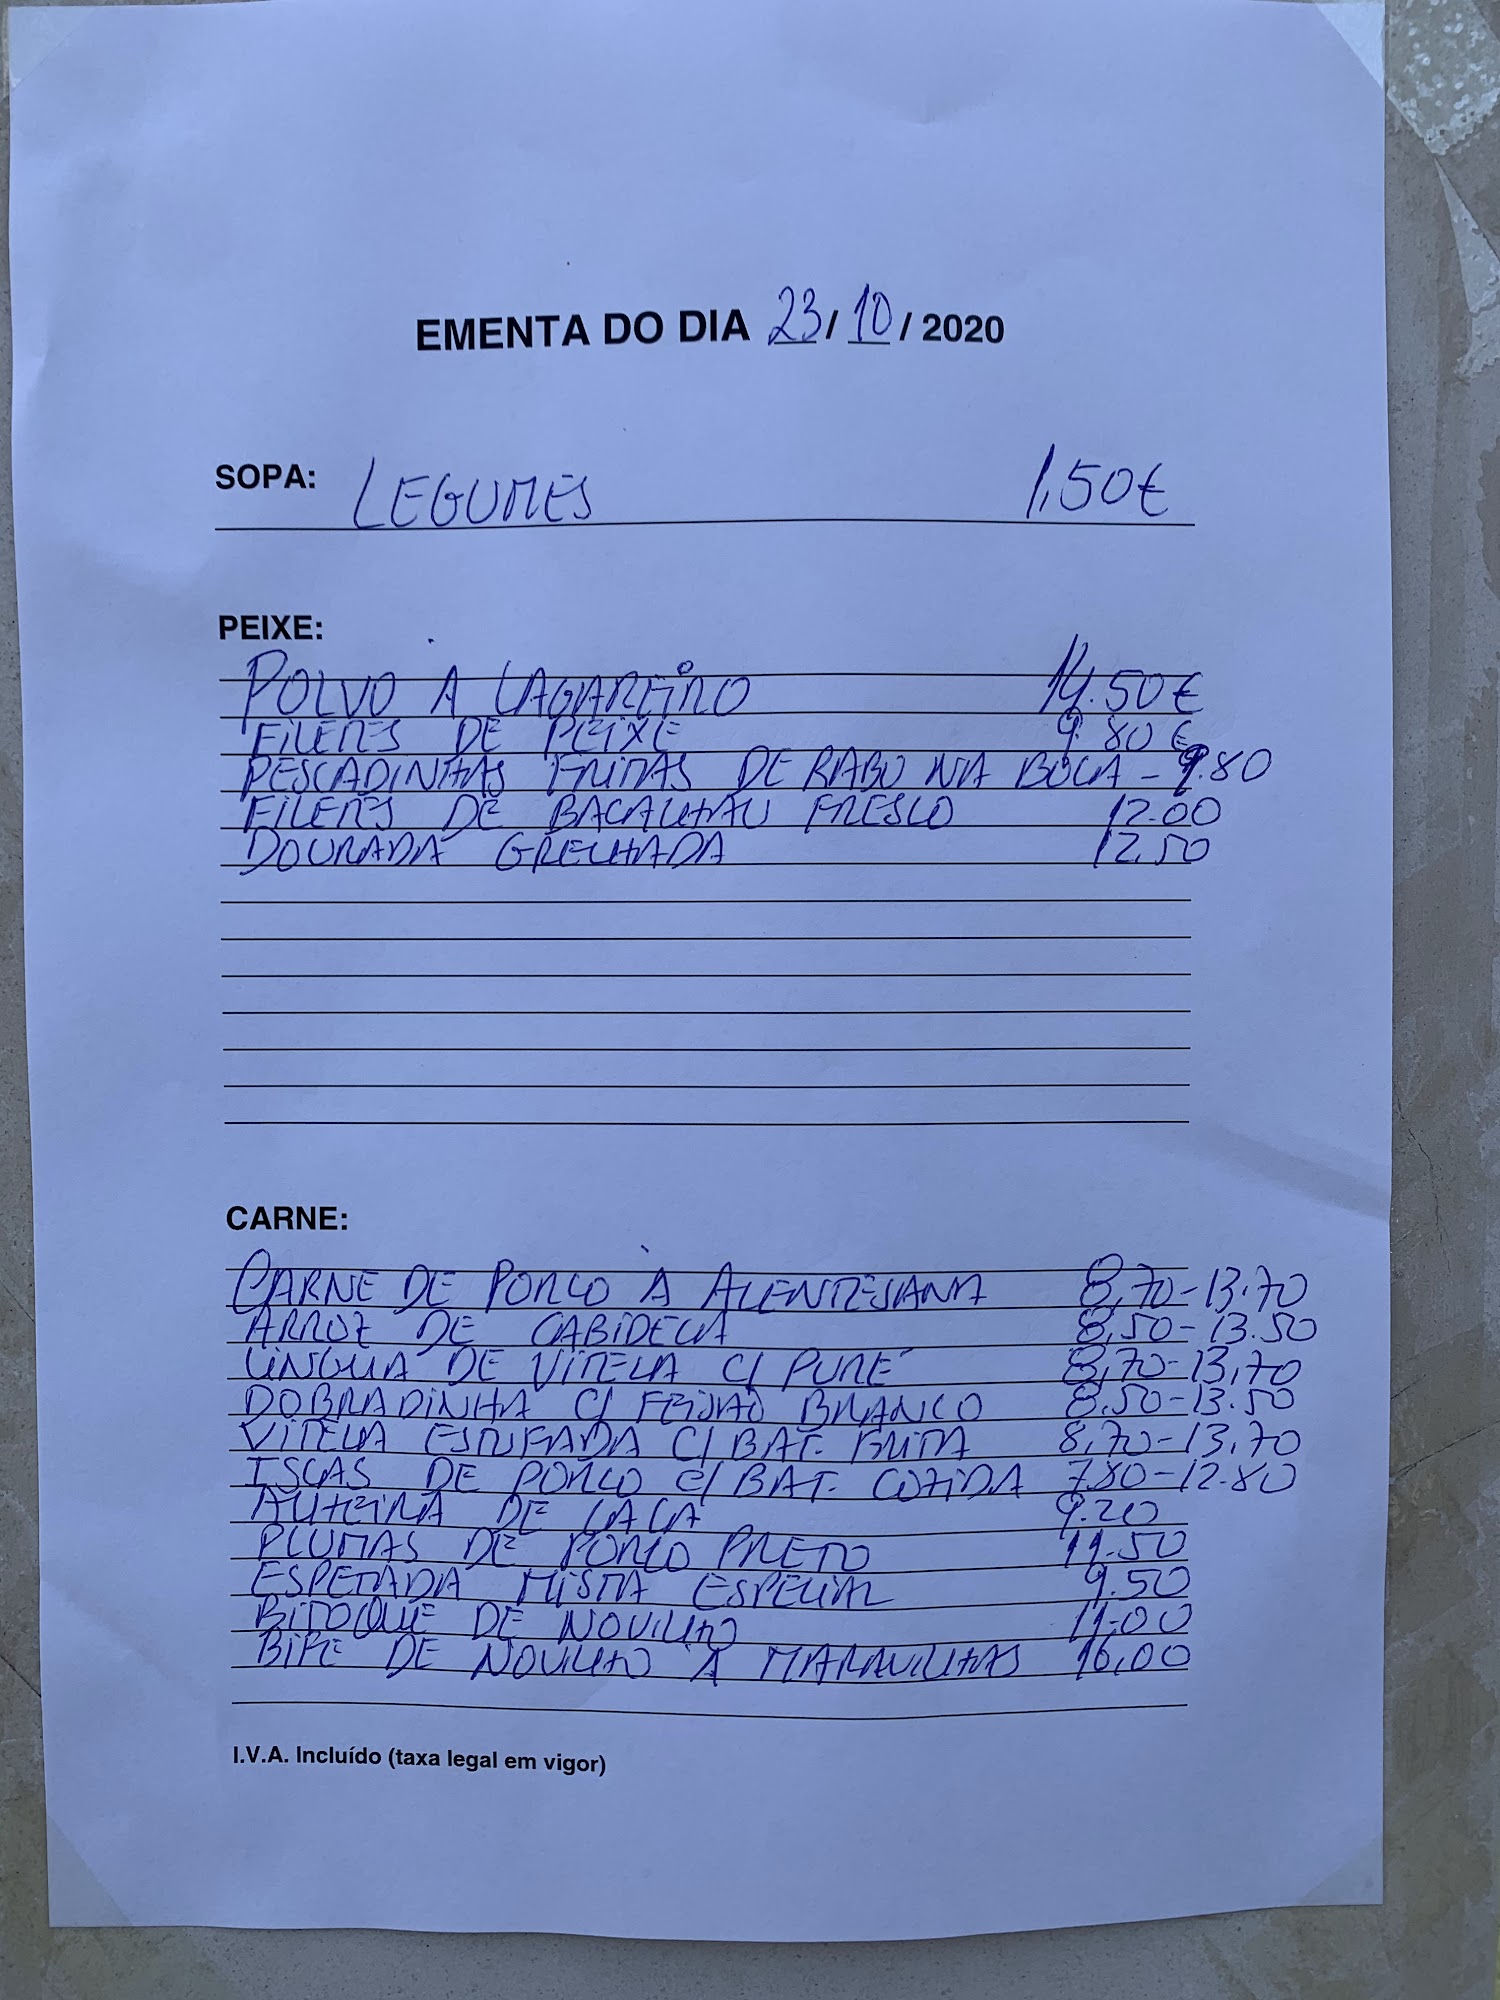 EMENTA DO DIA 23/10/2020
SOPA: LEGUMES 1,50€
PEIXE:
POLVO A LAGAREIRO 14.50€
FILETES DE PEIXE 9.80€
PESCADINHAS FRITAS DE RABO NA BOCA - 9.80
FILETES DE BACALHAU FRESCO 12.00
DOURADA GRELHADA 12.50
CARNE:
CARNE DE PORCO À ALENTEJANA 8,70-13.70
ARROZ DE CABIDELA 8,50-13.50
LINGUA DE VITELA C/ PURÉ 8,70-13,70
DOBRADINHA C/ FEIJÃO BRANCO 8.50-13.50
VITELA ESTUFADA C/ BAT. FRITA 8,70-13,70
ISCAS DE PORCO C/ BAT. COZIDA 7.80-12.80
ALHEIRA DE CAÇA 9.20
PLUMAS DE PORCO PRETO 11.50
ESPETADA MISTA ESPECIAL 9.50
BITOQUE DE NOVILHO 11.00
BIFE DE NOVILHO À MARAVILHAS 16,00
I.V.A. Incluído (taxa legal em vigor)